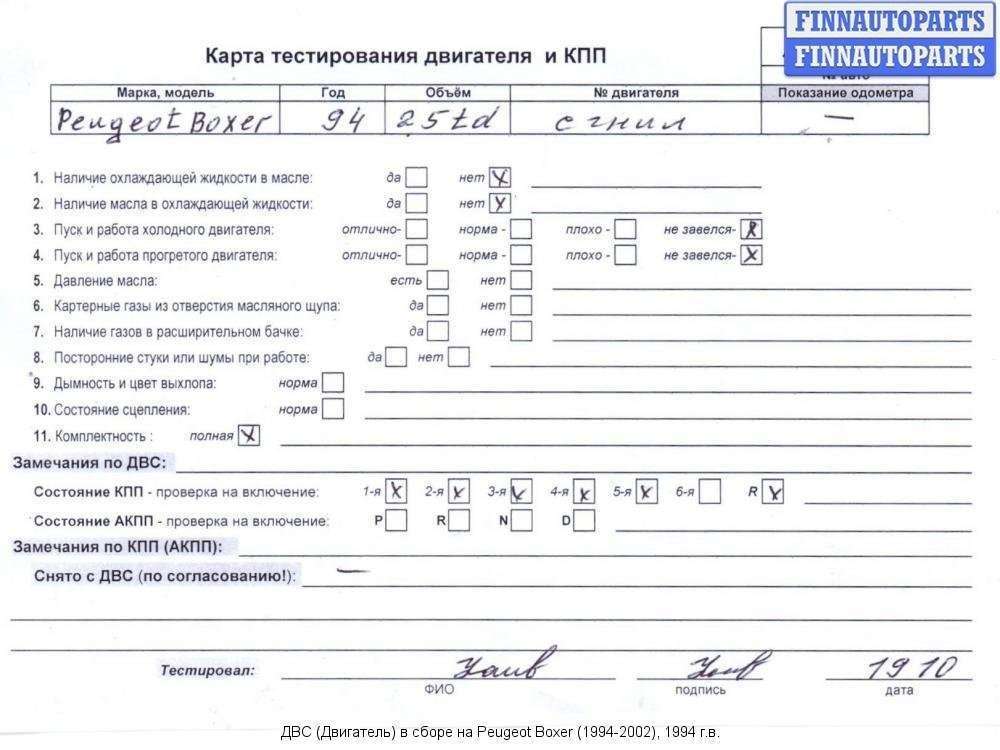 FINNAUTOPARTS
FINNAUTOPARTS
Карта тестирования двигателя и КПП
№ авто
Марка, модель Год Объём № двигателя Показание одометра
Peugeot Boxer 94 2.5 td сгнил —
1. Наличие охлаждающей жидкости в масле: да нет X
2. Наличие масла в охлаждающей жидкости: да нет X
3. Пуск и работа холодного двигателя: отлично- норма - плохо - не завелся- X
4. Пуск и работа прогретого двигателя: отлично- норма - плохо - не завелся- X
5. Давление масла: есть нет
6. Картерные газы из отверстия масляного щупа: да нет
7. Наличие газов в расширительном бачке: да нет
8. Посторонние стуки или шумы при работе: да нет
9. Дымность и цвет выхлопа: норма
10. Состояние сцепления: норма
11. Комплектность : полная X
Замечания по ДВС:
Состояние КПП - проверка на включение: 1-я X 2-я X 3-я X 4-я X 5-я X 6-я R X
Состояние АКПП - проверка на включение: P R N D
Замечания по КПП (АКПП):
Снято с ДВС (по согласованию!): —
Тестировал: 19 10
ФИО подпись дата
ДВС (Двигатель) в сборе на Peugeot Boxer (1994-2002), 1994 г.в.